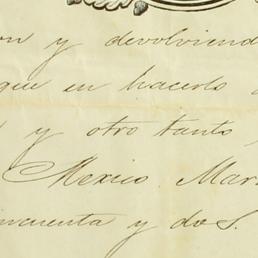 on y devolviend
que en hacerlo
y otro tanto
Mexico Mar
incuenta y dos.